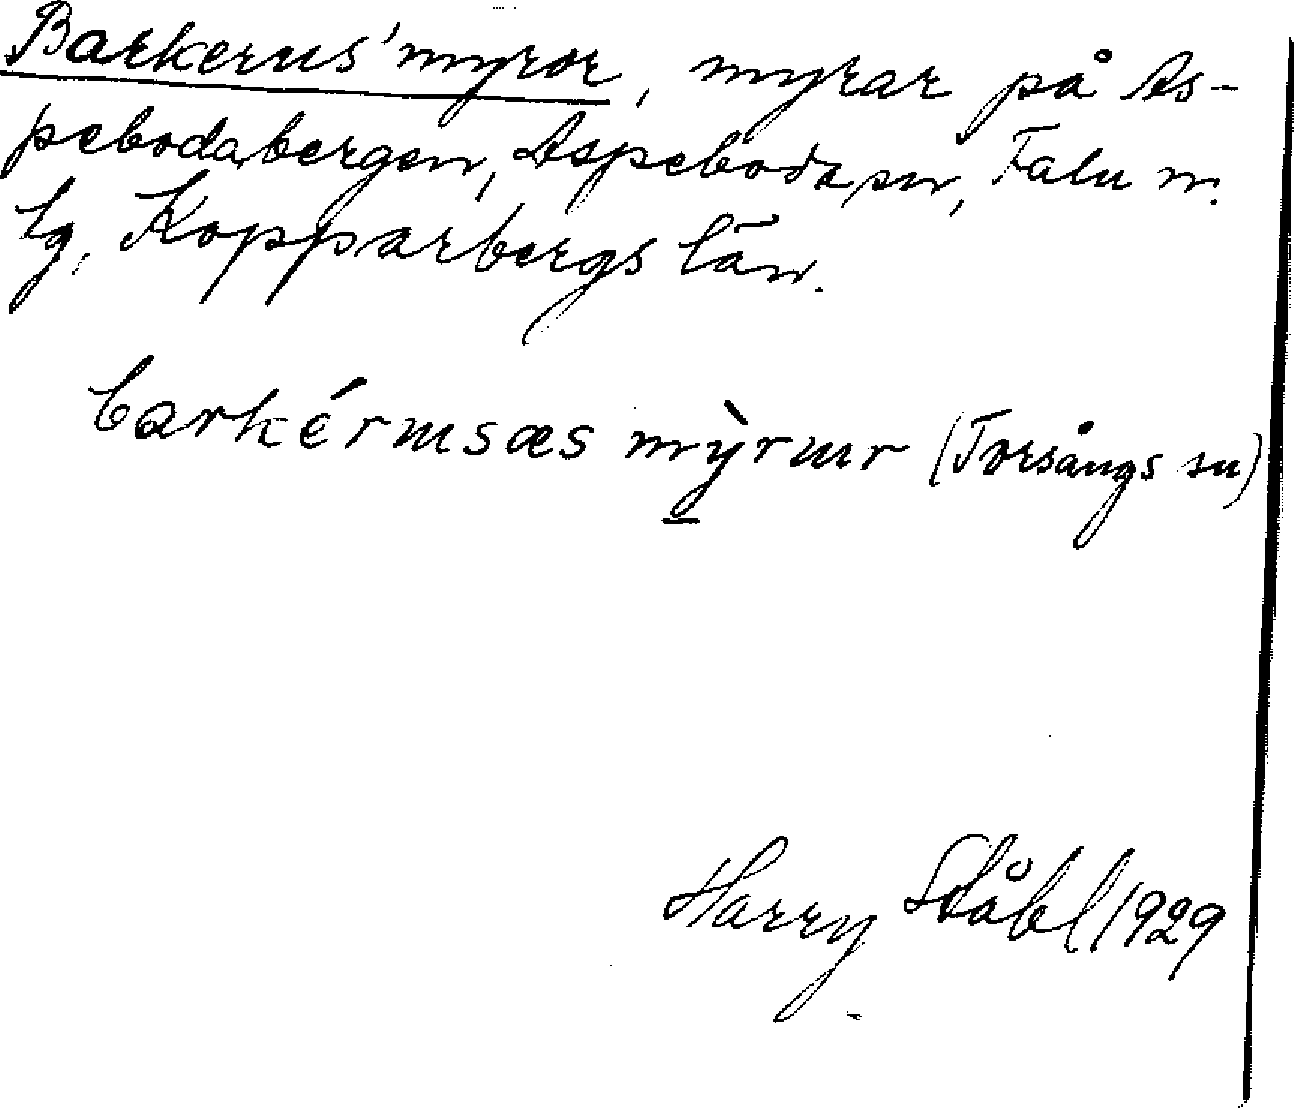 Barkerus' myror, myrar på As-
pebodabergen, Aspeboda sn, Falu n.
tg, Kopparbergs län.
barkérusæs mỳrur (Torsångs sn)
Harry Ståhl 1929